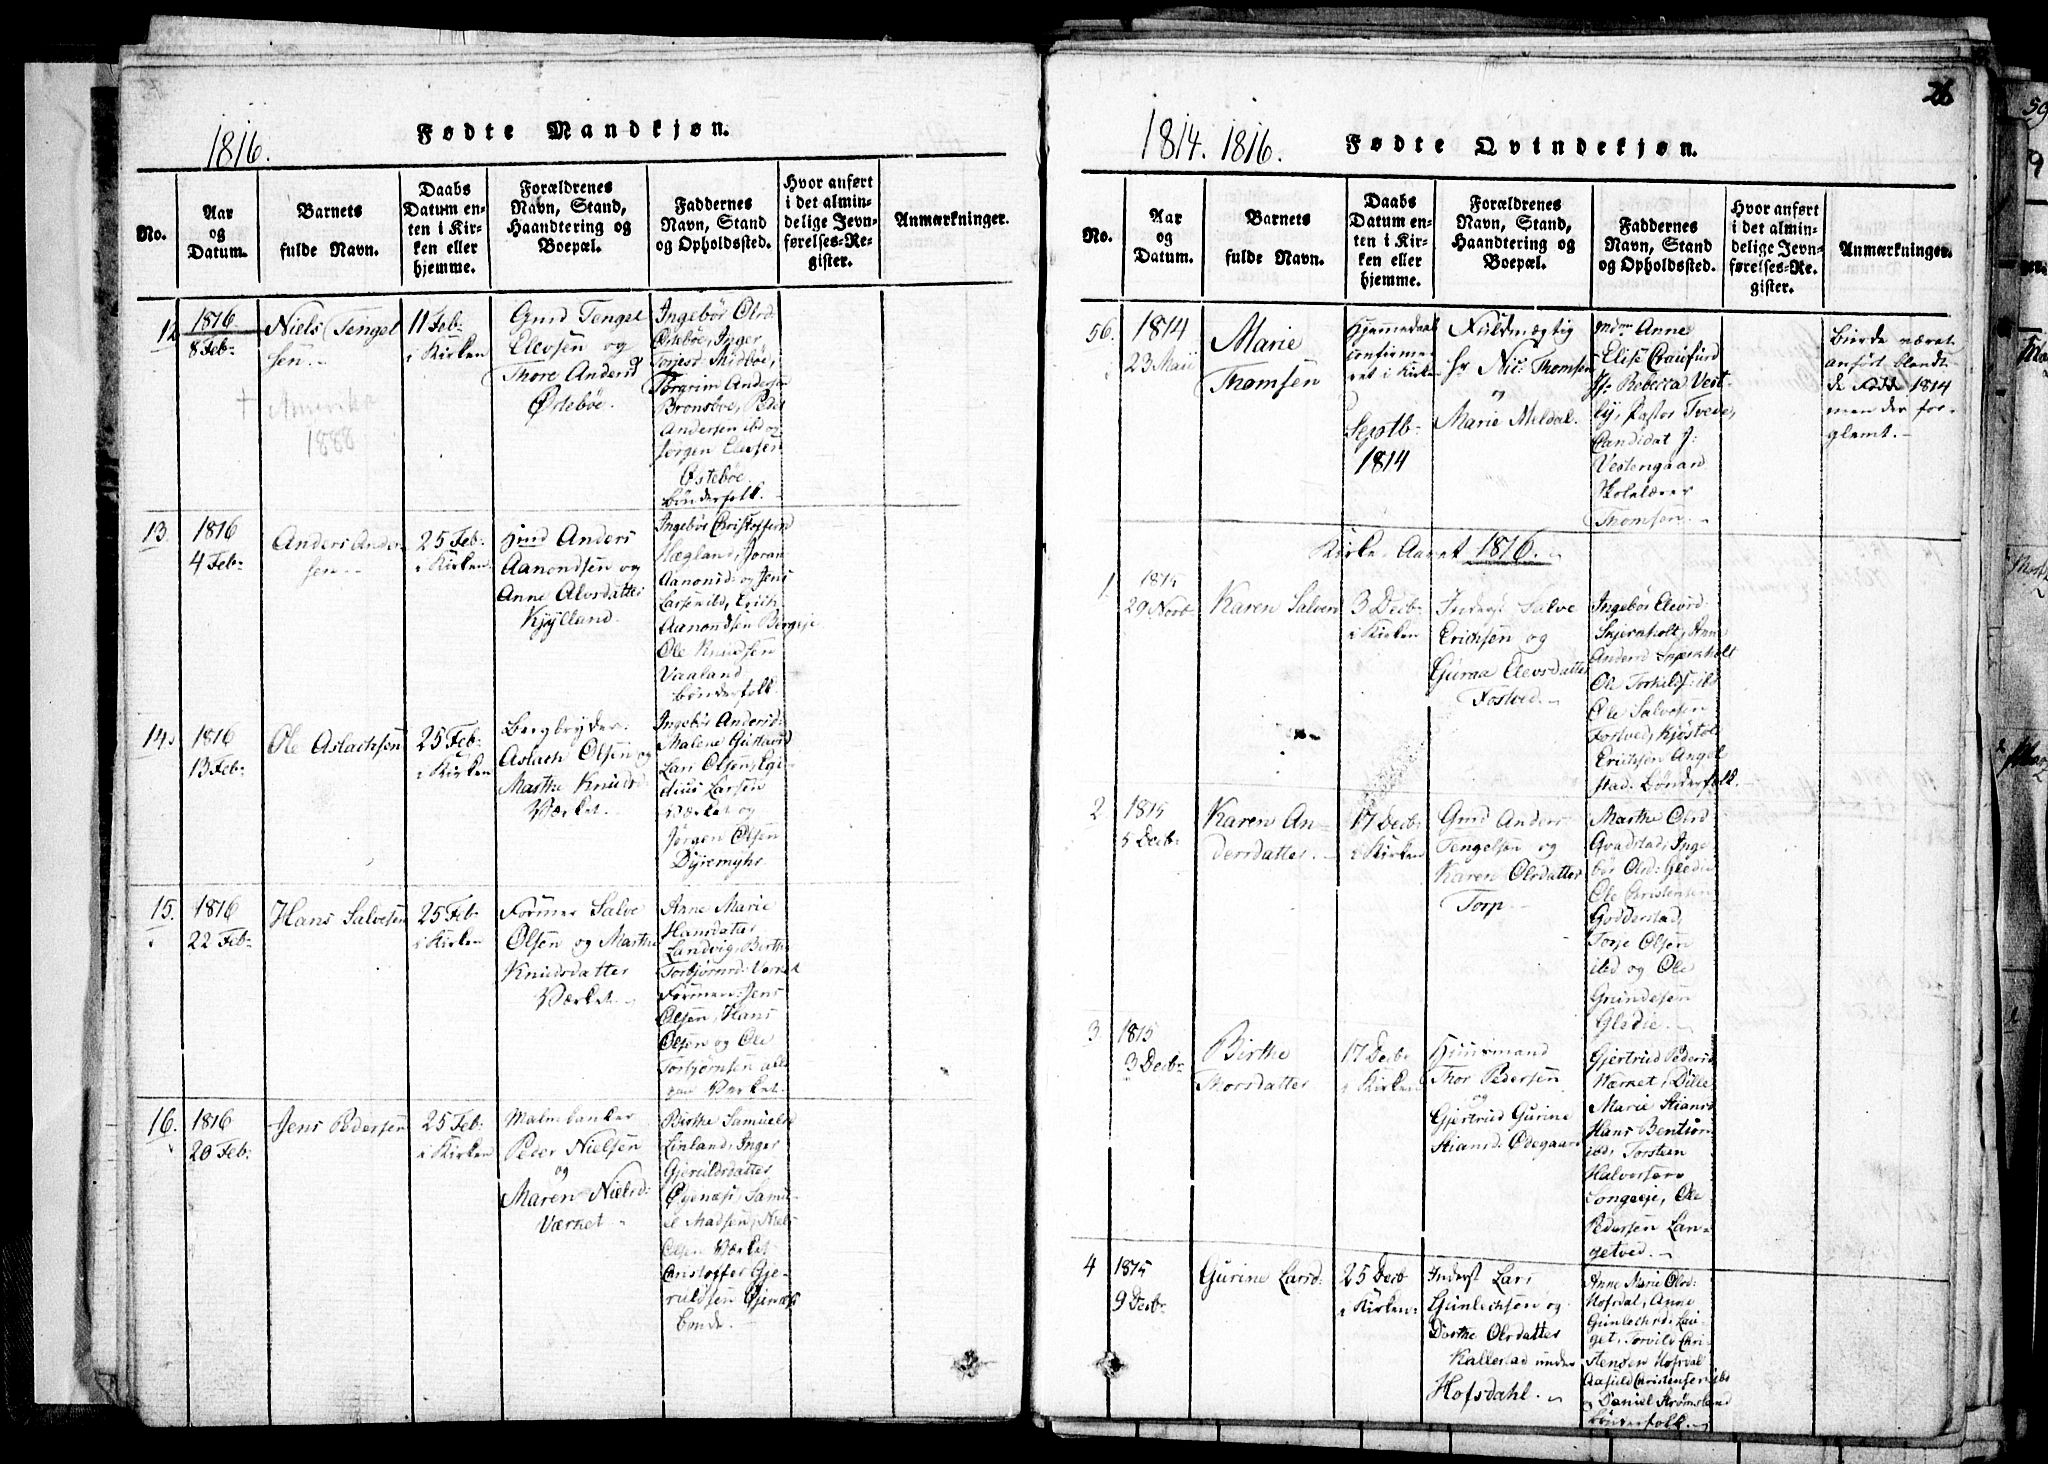 1816.
Fødte Mandkjøn.
No.
Aar
og
Datum.
Barnets
fulde Navn.
Daabs
Datum en-
ten i Kir-
ken eller
hjemme.
Forældrenes
Navn, Stand,
Haandtering og
Boepæl.
Faddernes
Navn, Stand
og Opholdssted.
Hvor anført
i det almin-
delige Jevn-
førelses-Re-
gister.
Anmærkninger.
12
1816
8 Feb:
Niels Tengel
sen.
+ Amerika
1888
11 Feb:
i Kirken
Gmd Tengel
Elevsen og
Thore Andersd
Østebøe.
Ingebør Olsd
Østebøe, Inger
Torgrim Anders
Bronsboe, Peder
Andersen ibd og
Jørgen Elevsen
Østebøe
Bønderfolk.
13
1816
4 Feb:
Anders Ander
sen.
25 Feb:
i Kirken
Gmd Anders
Aanondsen og
Anne Alvsdatter
Kjylland.
Ingebør Christophersd
Hægland, Joran
Aanonsd: og Jens
Larsen ibd, Erich
Aanondsen Bergeje
Ole Knudsen
Vaaland
Bønderfolk.
14.
1816
13 Feb:
Ole Aslachsen
25 Feb:
i Kirken
Bergbryder
Aslach Olsen og
Marthe Knudsd
Værket.
Ingebør Andersd:
Malene Gustavsd
Lars Olsen, Egi-
dius Larsen
Værket og
Jørgen Olsen
Dyremyhr
15.
1816
22 Feb:
Hans Salvesen
25 Feb
i Kirken
Former Salve
Olsen og Marthe
Knudsdatter
Værket.
Anne Marie
Hansdatter
Landvig, Birthe
Torbjørnsd: Værket
Former Jens
Olsen, Hans
Olsen og Ole
Torbjørnsen alle
paa Værket.
16.
1816
20 Feb:
Jens Pedersen
25 Feb:
i Kirken
Malmbanker
Peder Nielsen
og
Maren Nielsd:
Værket
Birthe Samuelsd
Linland, Inger
Gjeruldsdatter
Øyenæs, Samu-
el Madsen, Niels
Olsen Værket
Christopher Gje-
ruldsen Øjenæs
bonde.
26
1814. 1816.
Fødte Qvindekjøn.
No.
Aar
og
Datum.
Barnets
fulde Navn.
Daabs
Datum en-
ten i Kir-
ken eller
hjemme.
Forældrenes
Navn, Stand,
Haandtering og
Boepæl.
Faddernes
Navn, Stand
og Opholdssted.
Hvor anført
i det almin-
delige Jevn-
førelses-Re-
gister.
Anmærkninger.
56.
1814
23 Maii
Marie
Thomsen
Hjemmedaab
confirme
ret i Kirken
Septb:
1814
Fuldmægtig
Hr Nic: Thomsen
og
Marie Meldal.
Mdm Anne
Elise Craufurd
Jfr Rebecca Vest-
ly, Pastor Tvede,
Candidat J:
Vestengaard
Skolelærer
Thomsen.
Burde været
anført blandt
de Fødte 1814
men der for-
glemt.
Kirke Aaret 1816.
1
1815
29 Novb
Karen Salvesd
3 Decb:
i Kirken
Inderst Salve
Erichsen og
Guroa Elevsdatter
Fostved.
Ingebør Elevsd:
Skjernholt, Anne
Andersd Skjernholt
Ole Torkilds: ibd
Ole Salvesen
Fostved, Kjøstol
Erichsen Angel
stad. Bønderfolk.
2
1815
5 Decb:
Karen An-
dersdatter.
17 Decb:
i Kirken
Gmd Anders
Tengelsen og
Karen Olsdatter
Torp
Marthe Olsd
Qvadstad, Inge
bør Olsd: Glødie
Ole Christensen
Godderstad,
Torje Olsen
ibd og Ole
Gundesen
Glødie.
3
1815
3 Decb:
Birthe
Thorsdatter
17 Decb:
i Kirken
Huusmand
Thor Pedersen
og
Gjertrud Gurine
Stiansd: Ødegaard
Gjertrud Pedersd
Værket, Dille
Marie Stiansd
Hans Bentson
ibd, Torsten
Halvorsen
Longeje, Ole
Pedersen Lan-
getved.
4
1815
9 Decb:
Gurine Larsd:
25 Decb
i Kirken:
Inderst Lars
Gunlechsen og
Dorthe Olsdatter
Kallestad under
Hofsdahl.
Anne Marie Olsd:
Hofsdal, Anne
Gunlechsd: Lau-
get, Torvild Chri-
stensen Hofsdal
Aasuld Christensen ibd
og Daniel Strømsland
Bønderfolk.